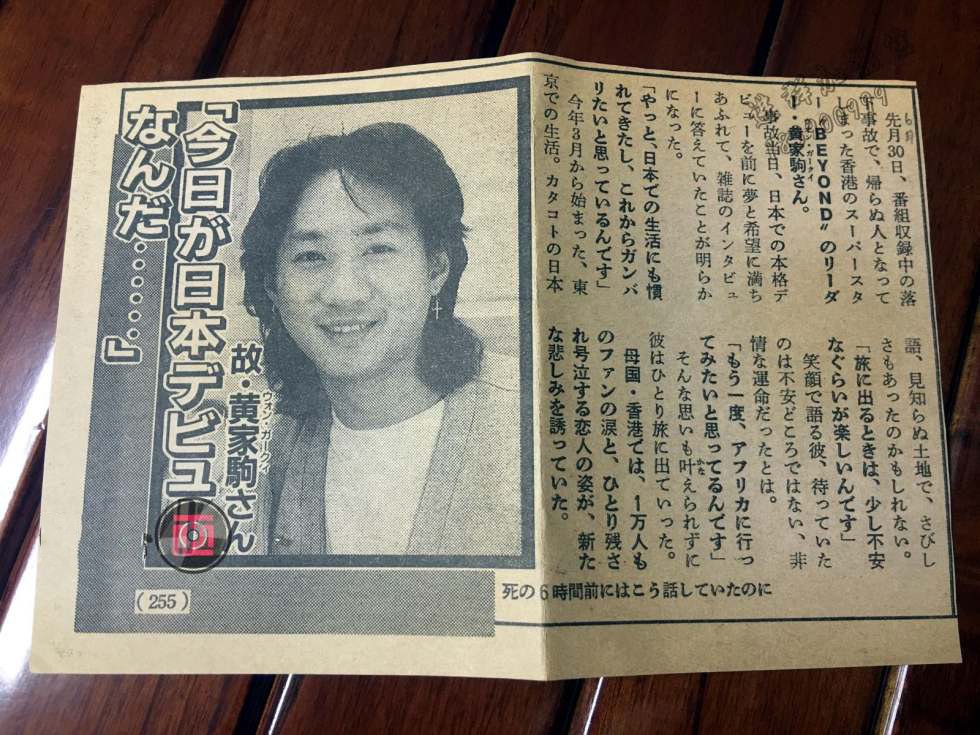 「今日が日本デビュー
なんだ………」
故・黄家駒さん
ウォン・ガークイ
(255)
6月
先月30日、番組収録中の落
下事故で、帰らぬ人となって
しまった香港のスーパースタ
ー“BEYOND”のリーダ
ー・黄家駒さん。
事故当日、日本での本格デ
ビューを前に夢と希望に満ち
あふれて、雑誌のインタビュ
ーに答えていたことが明らか
になった。
「やっと、日本での生活にも慣
れてきたし、これからガンバ
リたいと思っているんです」
今年3月から始まった、東
京での生活。カタコトの日本
語、見知らぬ土地で、さびし
さもあったのかもしれない。
「旅に出るときは、少し不安
なぐらいが楽しいんです」
笑顔で語る彼、待っていた
のは不安どころではない、非
情な運命だったとは。
「もう一度、アフリカに行っ
てみたいと思ってるんです」
そんな思いも叶えられずに
彼はひとり旅に出ていった。
母国・香港では、1万人も
のファンの涙と、ひとり残さ
れ号泣する恋人の姿が、新た
な悲しみを誘っていた。
死の6時間前にはこう話していたのに